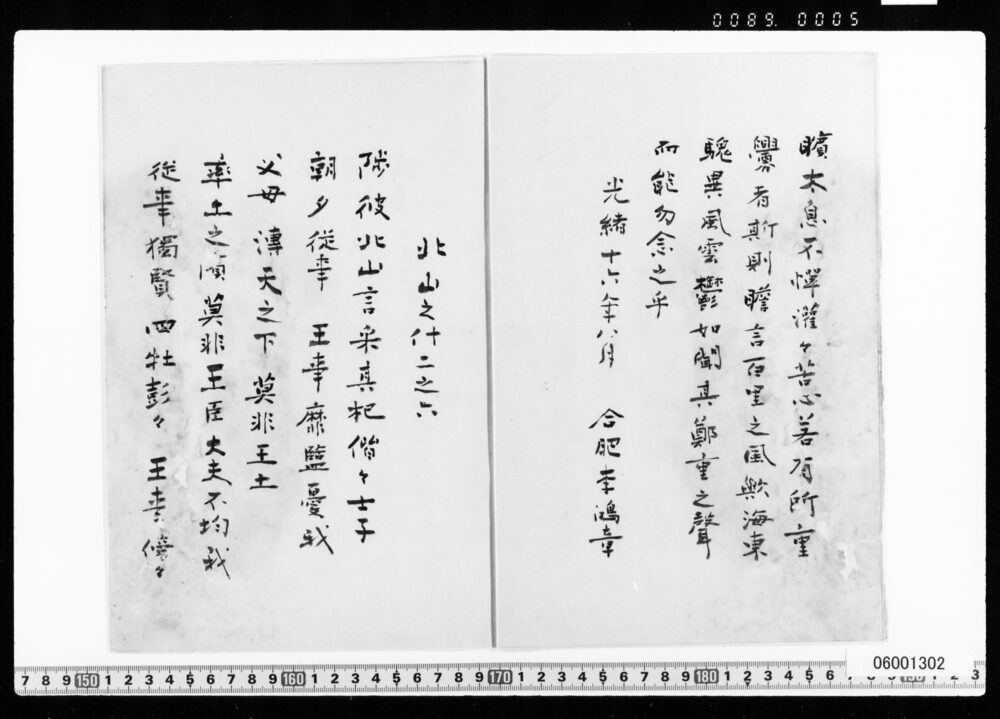 0089. 0005
曠太息不憚灌々苦心若有所重
釁者斯則瞻言百里之風歟海東
騩異風雲鬱如聞其鄭重之聲
而能勿念之乎
光緒十六年八月 合肥李鴻章
北山之什二之六
陟彼北山言采其杞偕々士子
朝夕從事 王事靡盬憂我
父母 溥天之下 莫非王土
率土之濱莫非王臣大夫不均我
從事獨賢 四牡彭々 王事傍々
06001302
7 8 9 150 1 2 3 4 5 6 7 8 9 160 1 2 3 4 5 6 7 8 9 170 1 2 3 4 5 6 7 8 9 180 1 2 3 4 5 6 7 8 9 190 1 2 3